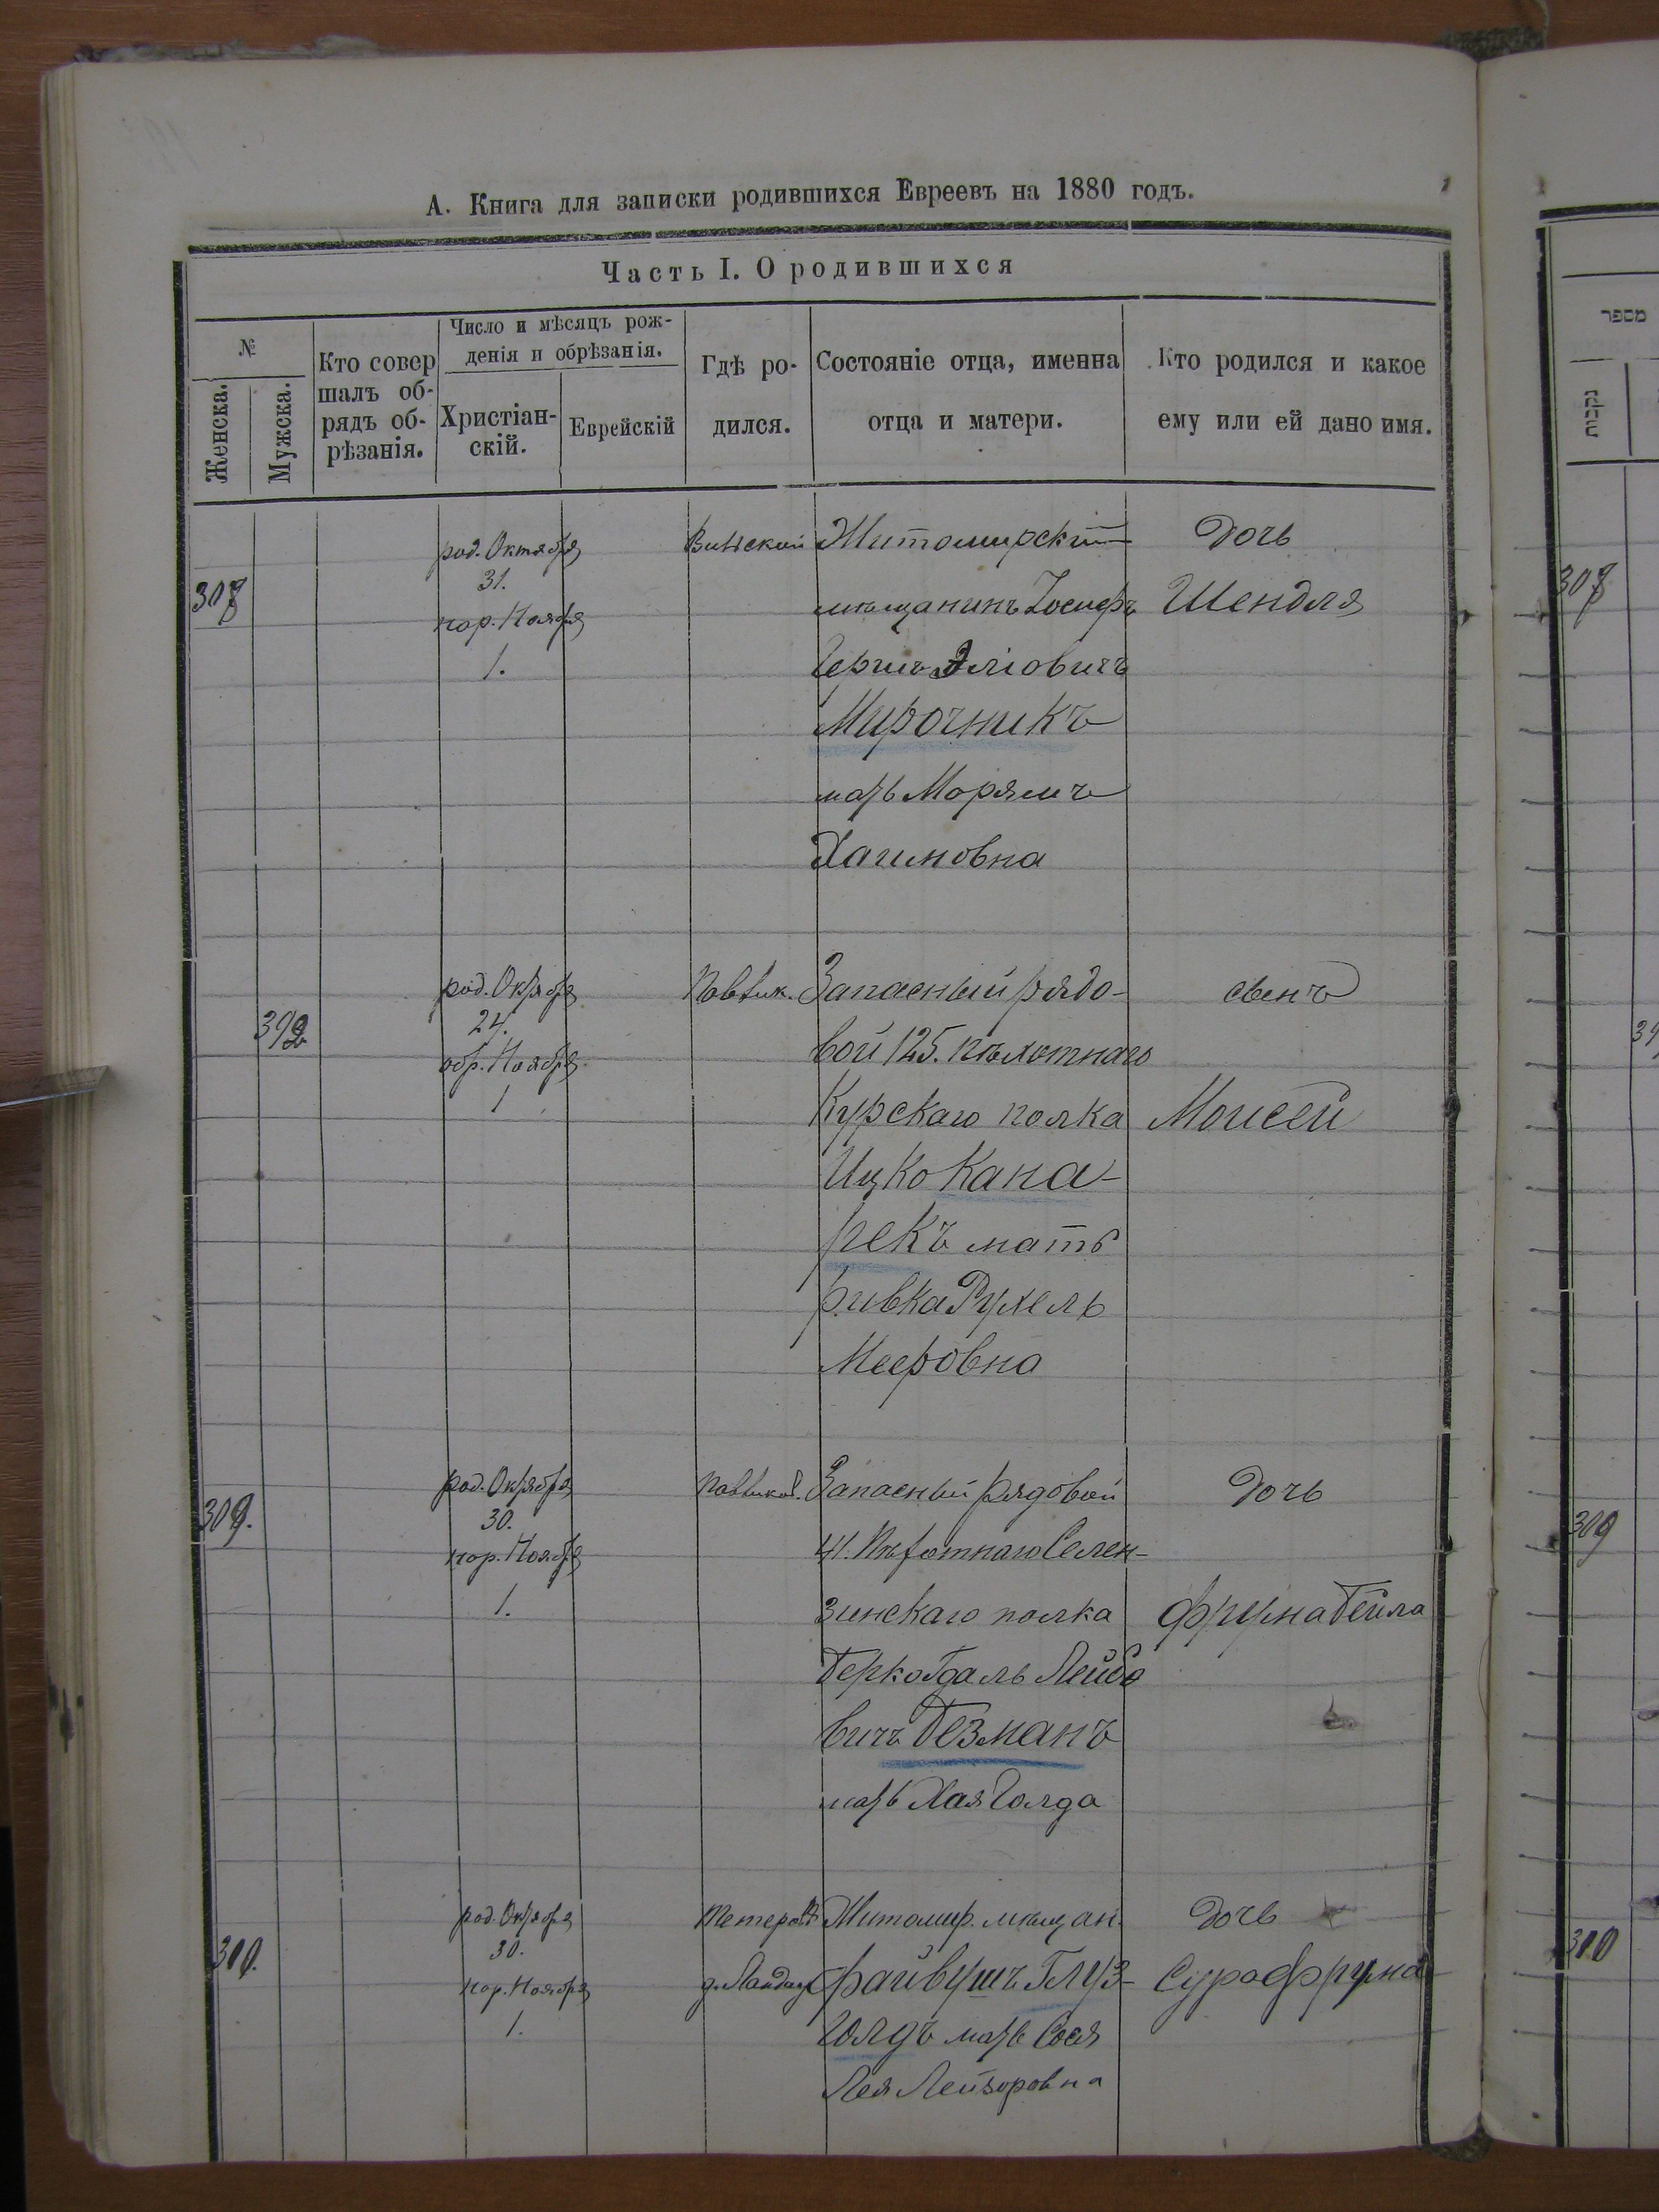 А. Книга для записки родившихся Евреевъ на 1880 годъ.
Часть I. О родившихся
№
Женска.
Мужска.
Кто совер
шалъ об-
рядъ об-
рѣзанія.
Число и мѣсяцъ рож-
денія и обрѣзанія.
Христіан-
скій.
Еврейскій
Гдѣ ро-
дился.
Состояніе отца, именна
отца и матери.
Кто родился и какое
ему или ей дано имя.
מספר
נקבות
308
род. Октября
31.
нар. Ноября
1.
Вильской
Житомирскій
мѣщанинъ Іосифъ
Гершъ Эліовичъ
Мирочникъ
мать Марямъ
Хаимовна
Дочь
Шендля
308
392
род. Октября
24.
обр. Ноября
1
Запасный рядо-
вой 125. пѣхотнаго
Курскаго полка
Ицко Кана-
рекъ мать
Ривка Рухель
Мееровна
сынъ
Моисей
39
309.
род. Октября
30.
нар. Ноября
1.
Запасный рядовой
41. Пѣхотнаго Селен-
зинскаго полка
Берко Гдаль Лейбо
вичъ Безманъ
мать Хая Голда
Дочь
Фрума Бейла
309
310.
род. Октября
30.
нар. Ноября
1.
Житомир. мѣщан.
Файвушъ Глуз-
голдъ мать Сося
Лея Лейзоровна
Дочь
Сура Фрума
310